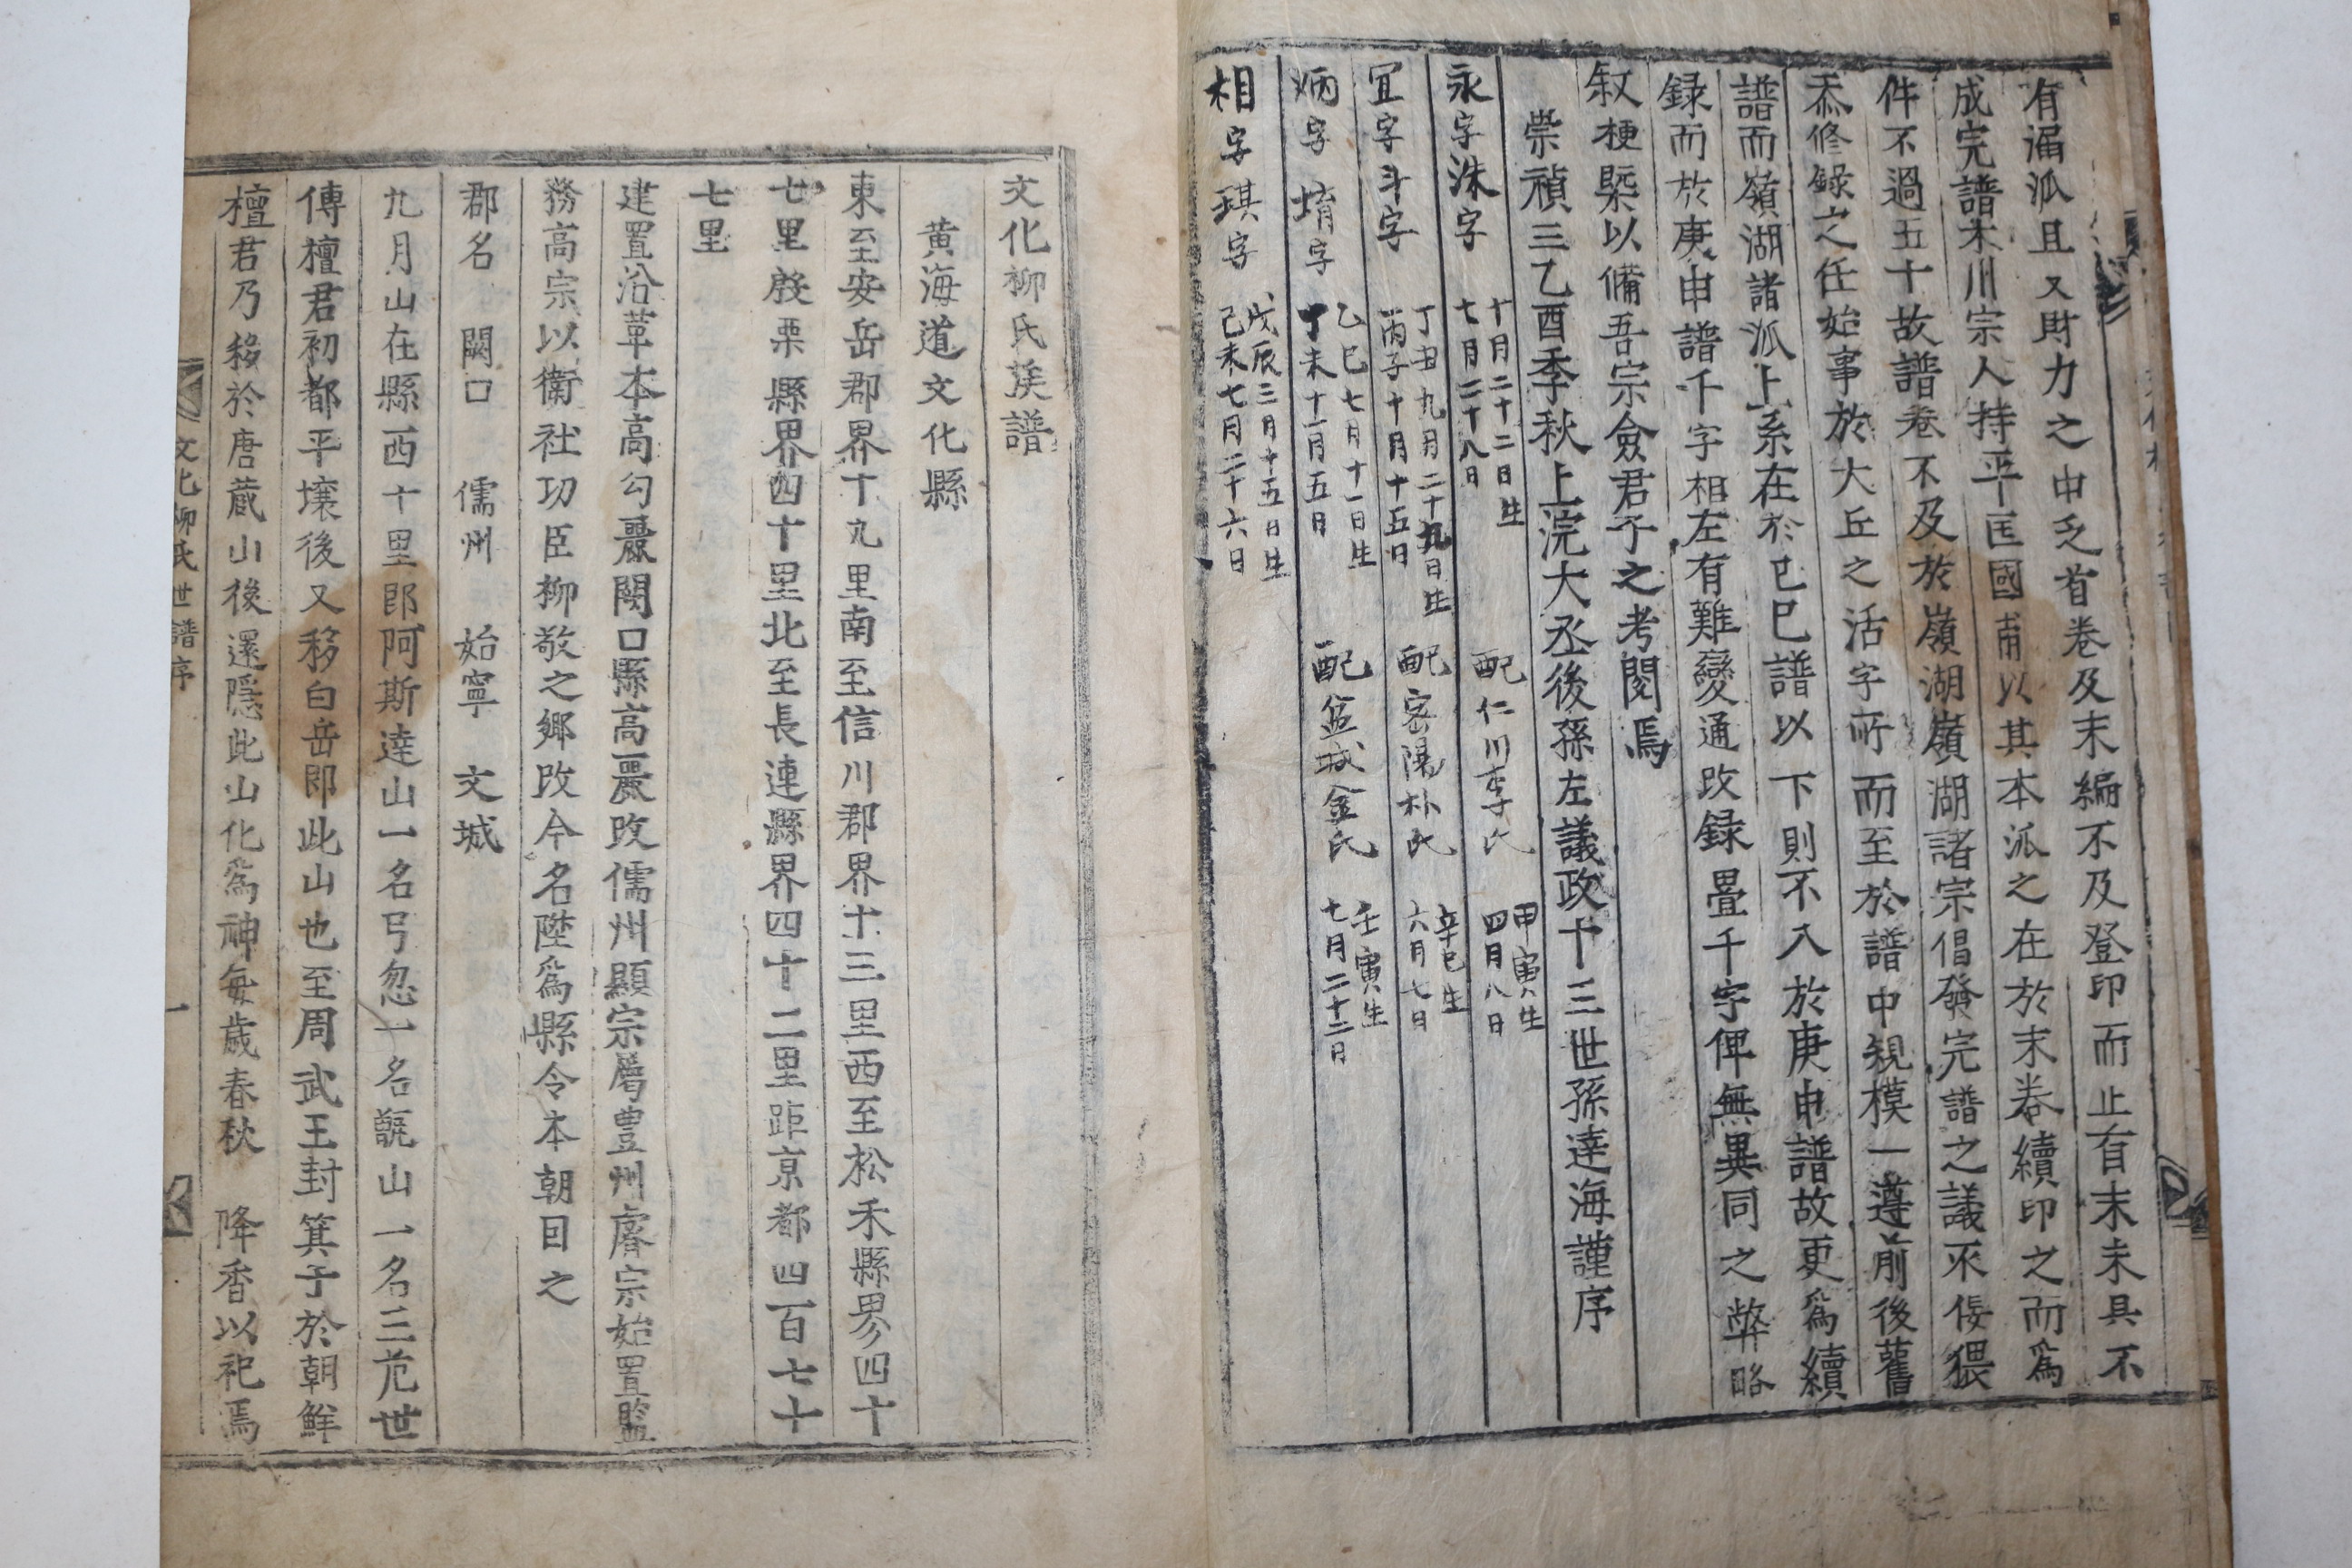 有漏派且又財力之中乏首卷及末編不及登印而止有末未具不
成完譜末川宗人持平匡國甫以其本派之在於末卷續印之而爲
件不過五十故譜卷不及於嶺湖嶺湖諸宗倡發完譜之議不佞猥
忝修錄之任始事於大丘之活字所而至於譜中規模一遵前後舊
譜而嶺湖諸派上系在於己巳譜以下則不入於庚申譜故更爲續
録而於庚申譜千字相左有難變通改録疊千字俾無異同之弊略
叙梗槩以備吾宗僉君子之考閱焉
崇禎三乙酉季秋上浣大丞後孫左議政十三世孫達海謹序
永字洙字 十月二十二日生 七月二十八日 配仁川李氏 甲寅生 四月八日
宜字斗字 丁丑九月二十九日生 丙子十月十五日 配密陽朴氏 辛巳生 六月七日
炳字堉字 乙巳七月十一日生 丁未十一月五日 配盆城金氏 壬寅生 七月二十二日
相字琪字 戊辰三月十五日生 己未七月二十六日
文化柳氏族譜
黄海道文化縣
東至安岳郡界十九里南至信川郡界十三里西至松禾縣界四十
七里殷栗縣界四十里北至長連縣界四十二里距京都四百七十
七里
建置沿革本高勾麗闕口縣高麗改儒州顯宗屬豊州睿宗始置監
務高宗以衛社功臣柳敬之鄉改今名陞爲縣令本朝因之
郡名 闕口 儒州 始寧 文城
九月山在縣西十里郎阿斯達山一名弓忽一名甑山一名三危世
傳檀君初都平壤後又移白岳即此山也至周武王封箕子於朝鮮
檀君乃移於唐蔵山後還隱此山化爲神每歲春秋 降香以祀焉
文化柳氏世譜序 一